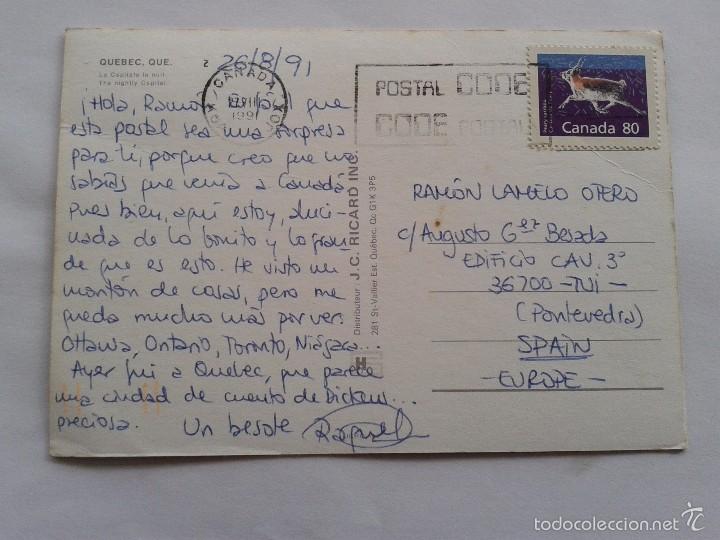 QUEBEC, QUE.
La Capitale la nuit
The nightly Capital
26/8/91
CANADA
POSTAL CODE
CODE POSTAL
Canada 80
¡Hola, Ramón! que
esta postal sea una sorpresa
para ti, porque creo que no
sabías que venía a Canadá.
Pues bien, aquí estoy, aluci-
nada de lo bonito y lo gran-
de que es esto. He visto un
montón de cosas, pero me
queda mucho más por ver:
Ottawa, Ontario, Toronto, Niágara...
Ayer fui a Quebec, que parece
una ciudad de cuento de Dickens...
preciosa. Un besote Raquel
Distributeur J.C. RICARD INC.
281 St-Vallier Est. Québec. Qc G1K 3P5
RAMÓN LAMELO OTERO
c/ Augusto Glez Besada
EDIFICIO CAV. 3º
36700 -TUI-
(Pontevedra)
SPAIN
-EUROPE-
© todocoleccion.net